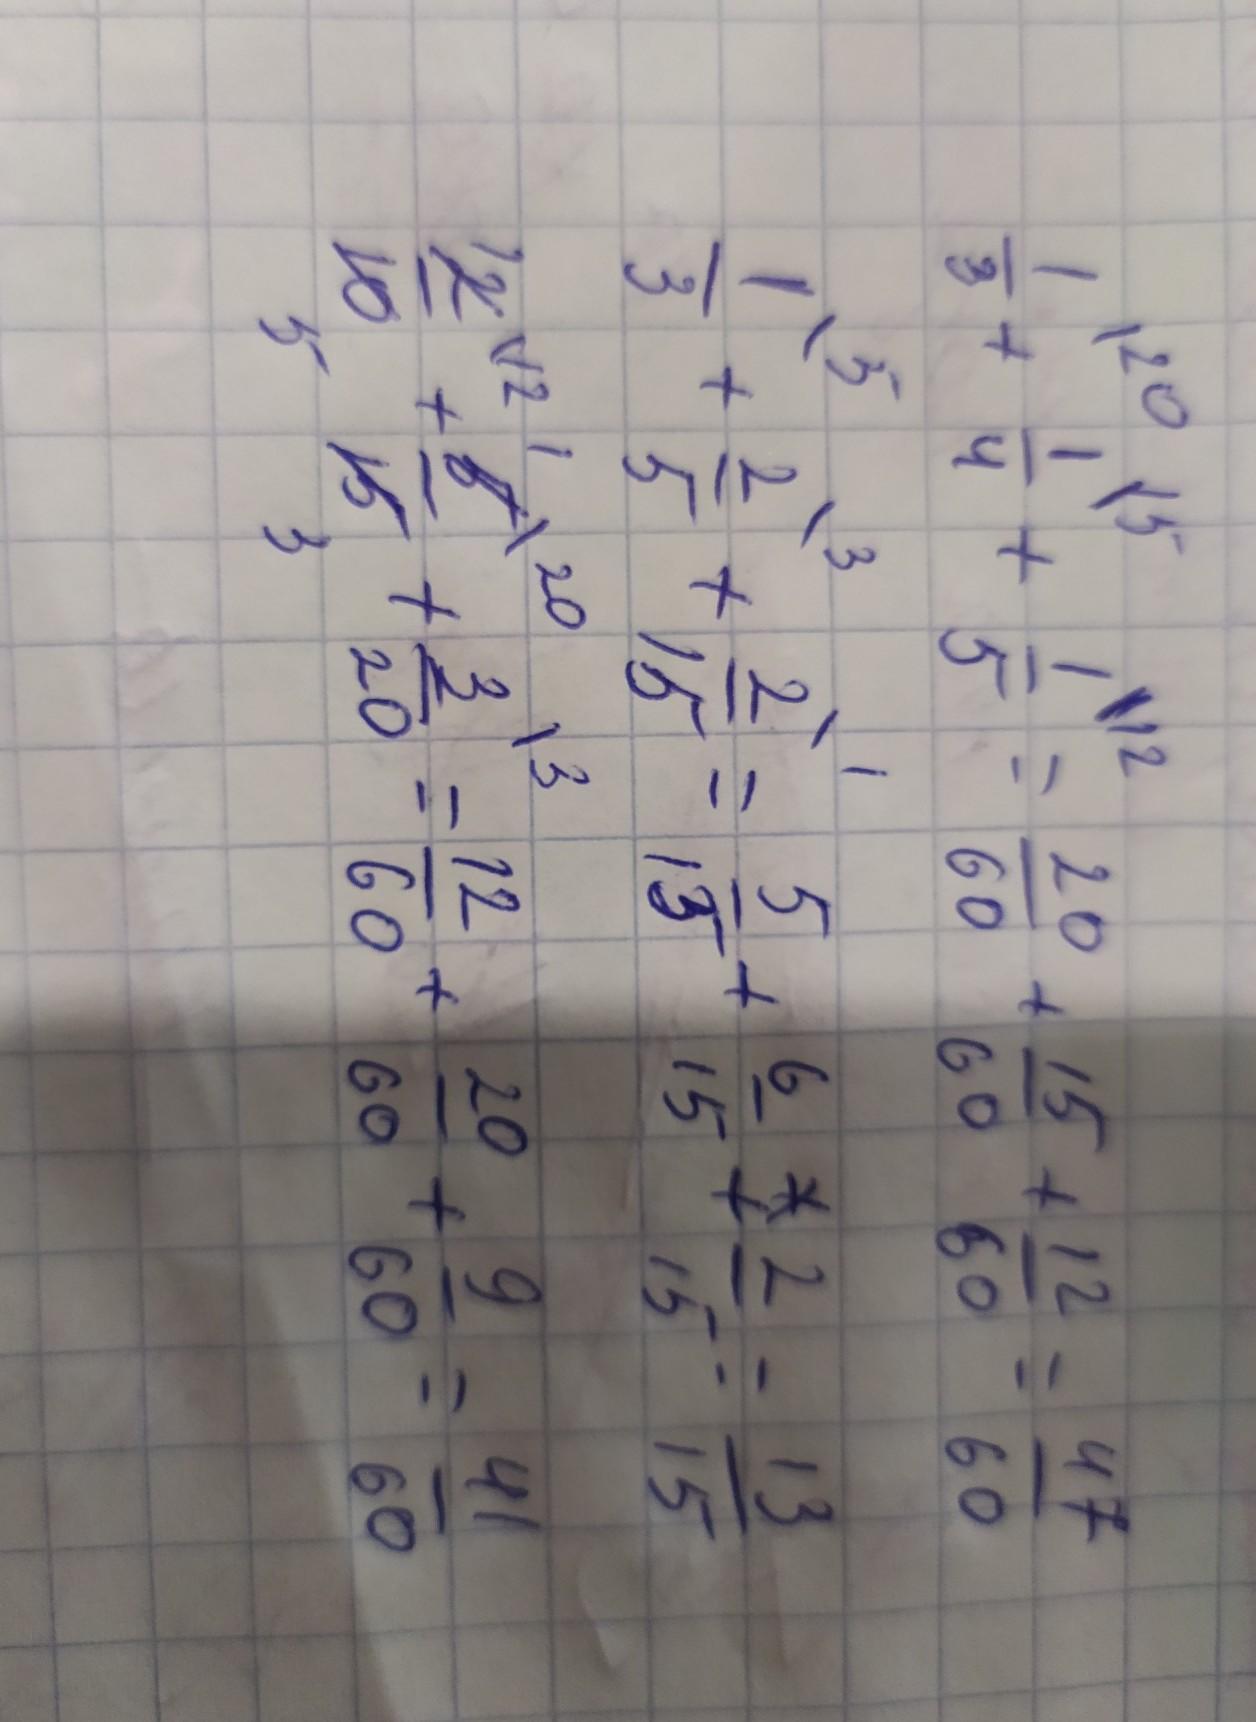 1/3 \20 + 1/4 \15 + 1/5 \12 = 20/60 + 15/60 + 12/60 = 47/60
1/3 \5 + 2/5 \3 + 2/15 \1 = 5/15 + 6/15 + 2/15 = 13/15
2/10 \12 + 5/15 \20 + 3/20 \3 = 12/60 + 20/60 + 9/60 = 41/60
5 3